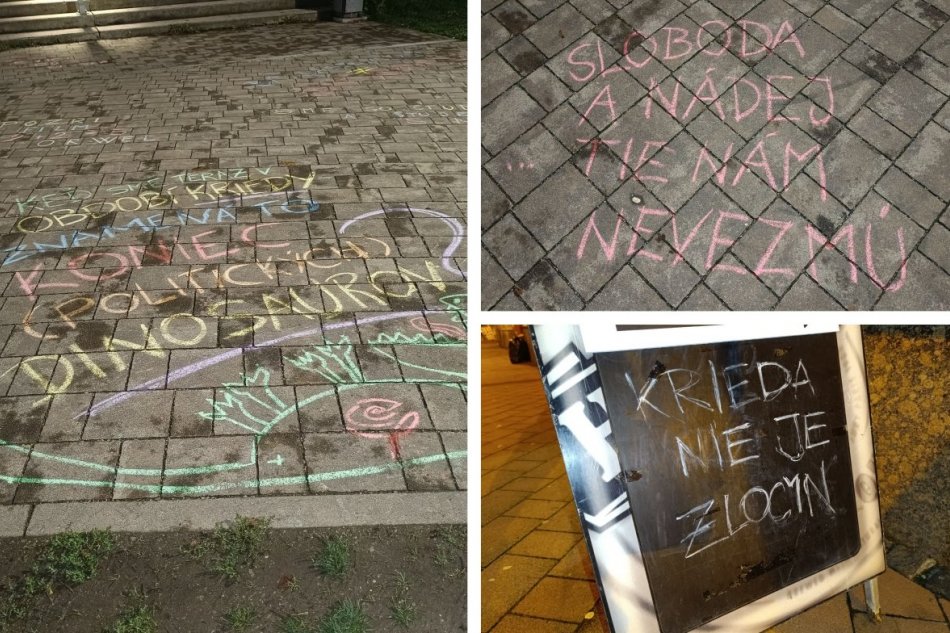 KEĎ SME TERAZ V
OBDOBÍ KRIEDY
ZNAMENÁ TO
KONIEC
(POLITICKÝCH)
DINOSAUROV
SLOBODA
A NÁDEJ
... TIE NÁM
NEVEZMÚ
KRIEDA
NIE JE
ZLOČIN